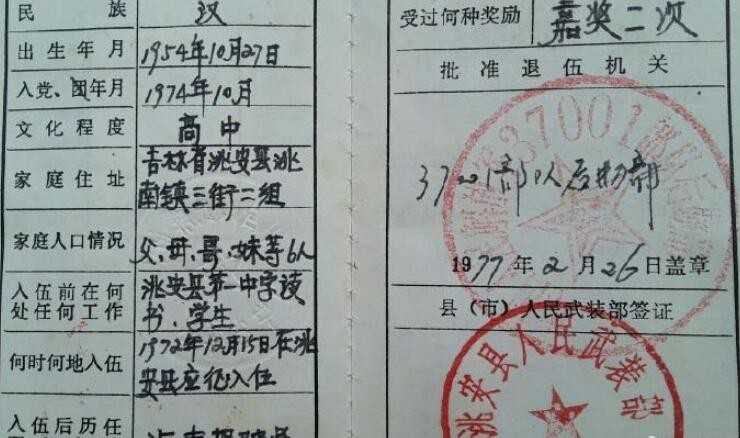 民 族 汉
出生年月 1954年10月27日
入党、团年月 1974年10月
文化程度 高中
家庭住址 吉林省洮安县洮
南镇三街二组
家庭人口情况 父、母、哥、妹等6人
入伍前在何 洮安县第一中学读
处任何工作 书、学生
何时何地入伍 1972年12月15日在洮
安县应征入伍
入伍后历任
受过何种奖励 嘉奖二次
批准退伍机关
37001部队后勤部
1977年2月26日盖章
县(市)人民武装部签证
洮安县人民武装部